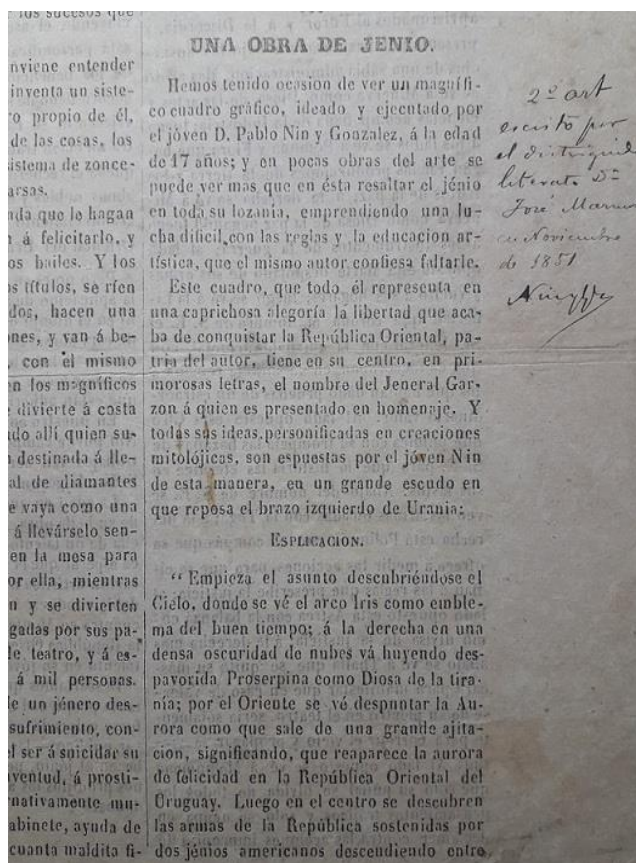 los sucesos que
nviene entender
inventa un siste-
ro propio de él,
de las cosas, los
sistema de zonce-
arsas.
ada que le hagan
n á felicitarlo, y
os bailes. Y los
s títulos, se ríen
dos, hacen una
ones, y van á be-
, con el mismo
en los magníficos
e divierte á costa
ndo allí quien su-
a destinada á lle-
al de diamantes
e vaya como una
á llevárselo sen-
en la mesa para
or ella, mientras
n y se divierten
gadas por sus pa-
le teatro, y á es-
á mil personas.
le un jénero des-
sufrimiento, con-
l ser á suicidar su
ventud, á prosti-
nativamente mu-
abinete, ayuda de
cuanta maldita fi-
UNA OBRA DE JENIO.
Hemos tenido ocasion de ver un magnífi-
co cuadro gráfico, ideado y ejecutado por
el jóven D. Pablo Nin y Gonzalez, á la edad
de 17 años; y en pocas obras del arte se
puede ver mas que en ésta resaltar el jénio
en toda su lozanía, emprendiendo una lu-
cha dificil con las reglas y la educacion ar-
tística, que el mismo autor confiesa faltarle.
Este cuadro, que todo él representa en
una caprichosa alegoría la libertad que aca-
ba de conquistar la República Oriental, pa-
tria del autor, tiene en su centro, en pri-
morosas letras, el nombre del Jeneral Gar-
zon á quien es presentado en homenaje. Y
todas sus ideas, personificadas en creaciones
mitolójicas, son espuestas por el jóven Nin
de esta manera, en un grande escudo en
que reposa el brazo izquierdo de Urania:
ESPLICACION.
“Empieza el asunto descubriéndose el
Cielo, donde se vé el arco Iris como emble-
ma del buen tiempo; á la derecha en una
densa oscuridad de nubes vá huyendo des-
pavorida Proserpina como Diosa de la tira-
nía; por el Oriente se vé despuntar la Au-
rora como que sale de una grande ajita-
cion, significando, que reaparece la aurora
de felicidad en la República Oriental del
Uruguay. Luego en el centro se descubren
las armas de la República sostenidas por
dos jénios americanos descendiendo entre
2º art
escrito por
el distinguido
literato Dn
José Marmol
en Noviembre
de 1851